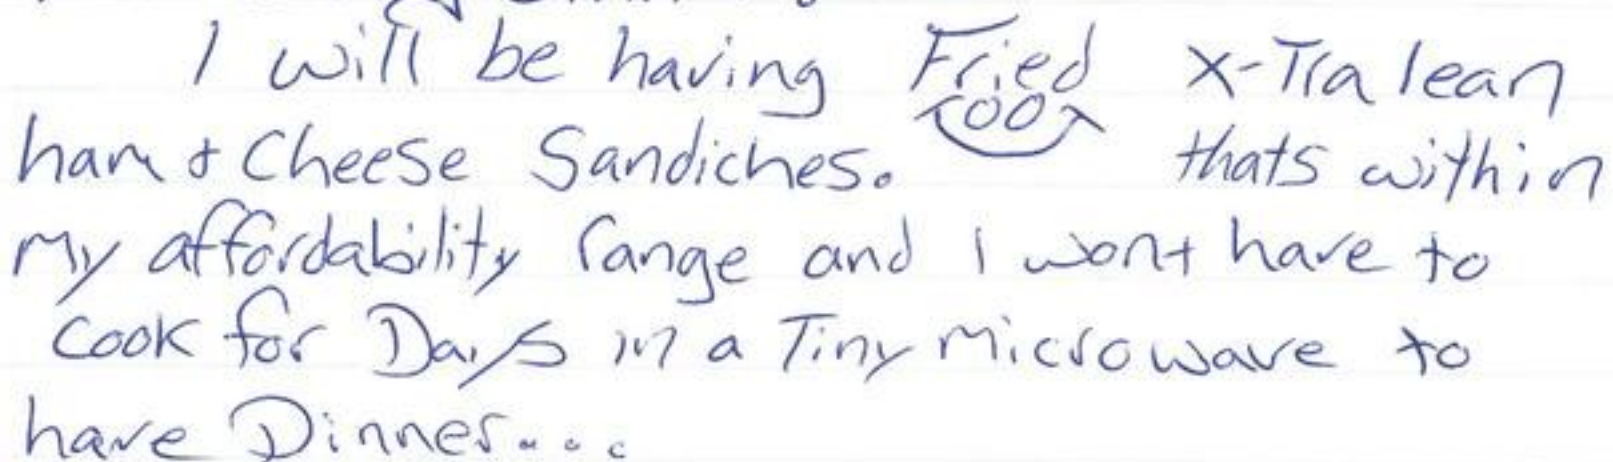 I will be having Fried X-Tra lean
ham & Cheese Sandiches. thats within
My affordability range and I wont have to
Cook for Days in a Tiny Microwave to
have Dinner....